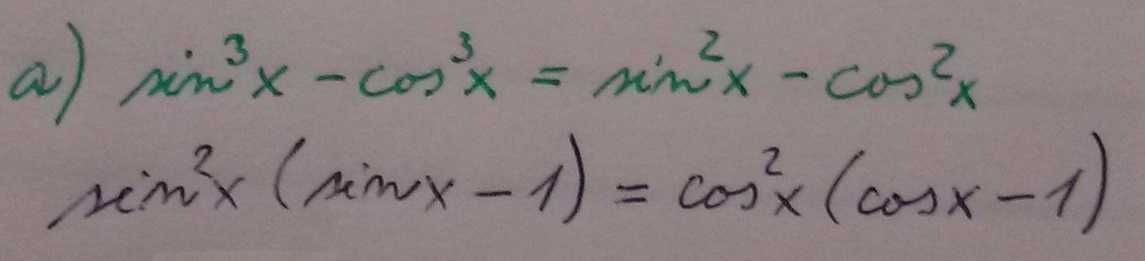 a) sin³x - cos³x = sin²x - cos²x
sin²x (sinx - 1) = cos²x (cosx - 1)